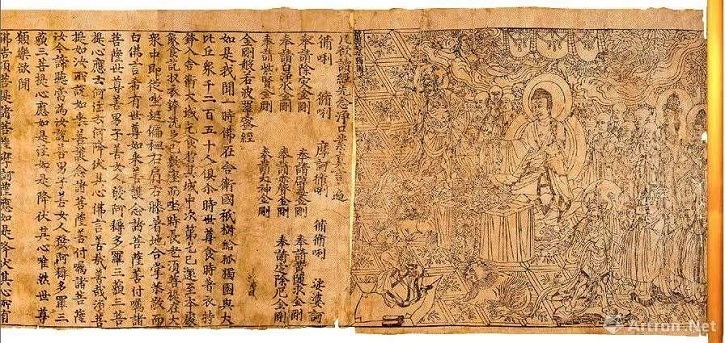 凡欲讀經先念淨口業真言一遍
脩唎 脩唎 摩訶脩唎 脩脩唎 娑婆訶
奉請除灾金剛 奉請辟毒金剛 奉請黄隨求金剛
奉請白淨水金剛 奉請赤聲金剛 奉請定除厄金剛
奉請紫賢金剛 奉請大神金剛
金剛般若波羅蜜經
如是我聞一時佛在舍衛國祇樹給孤獨園與大
比丘衆千二百五十人俱尒時世尊食時著衣持
鉢入舍衛大城乞食於其城中次第乞已還至本處
飯食訖收衣鉢洗足已敷座而坐時長老須菩提在大
衆中即從座起偏袒右肩右膝著地合掌恭敬而
白佛言希有世尊如來善護念諸菩薩善付囑諸
菩薩世尊善男子善女人發阿耨多羅三藐三菩
提心應云何住云何降伏其心佛言善哉善哉須菩
提如汝所說如來善護念諸菩薩善付囑諸菩薩
汝今諦聽當為汝說善男子善女人發阿耨多羅三
藐三菩提心應如是住如是降伏其心唯然世尊
願樂欲聞
佛告須菩提諸菩薩摩訶薩應如是降伏其心所有
Artron.Net